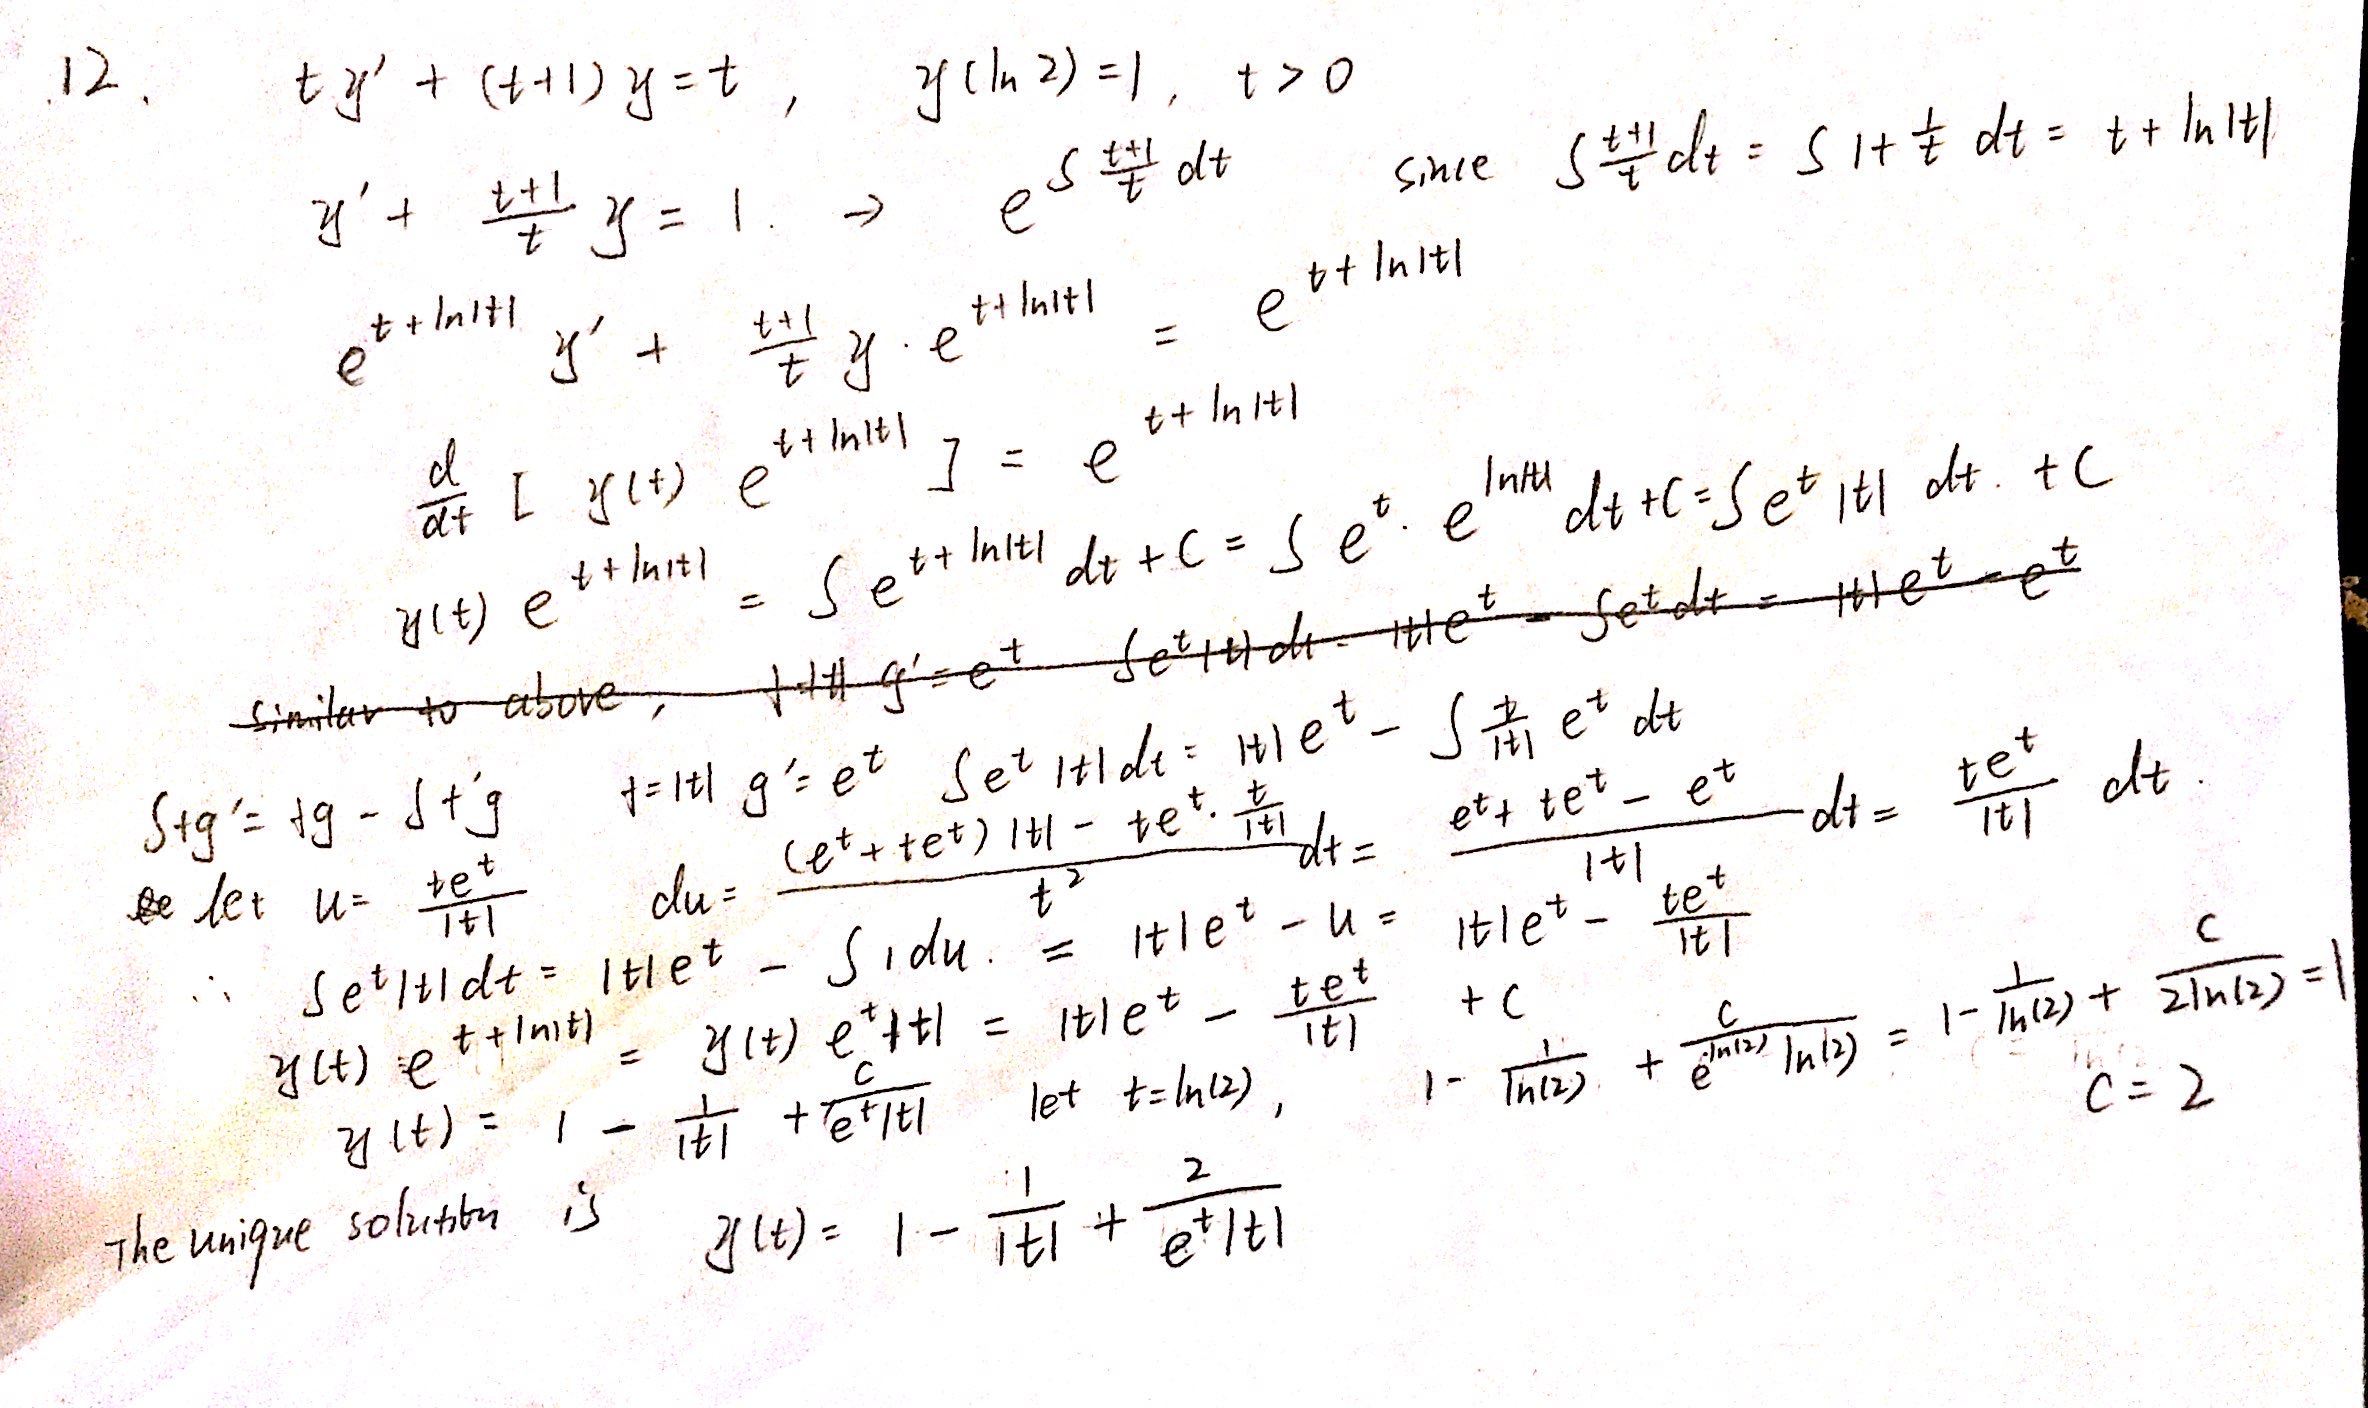 12. ty' + (t+1)y = t, y(ln 2) = 1, t > 0
y' + \frac{t+1}{t} y = 1. → e^{∫ \frac{t+1}{t} dt} since ∫ \frac{t+1}{t} dt = ∫ 1 + \frac{1}{t} dt = t + ln|t|
e^{t+ln|t|} y' + \frac{t+1}{t} y · e^{t+ln|t|} = e^{t+ln|t|}
\frac{d}{dt} [ y(t) e^{t+ln|t|} ] = e^{t+ln|t|}
y(t) e^{t+ln|t|} = ∫ e^{t+ln|t|} dt + C = ∫ e^t · e^{ln|t|} dt + C = ∫ e^t |t| dt. + C
similar to above, f=|t| g'=e^t ∫e^t|t|dt = |t|e^t - ∫e^t dt = |t|e^t - e^t
∫fg' = fg - ∫f'g f=|t| g'=e^t ∫e^t |t| dt = |t|e^t - ∫ \frac{t}{|t|} e^t dt
let u = \frac{te^t}{|t|} du = \frac{(e^t + te^t)|t| - te^t · \frac{t}{|t|}}{t^2} dt = \frac{e^t + te^t - e^t}{|t|} dt = \frac{te^t}{|t|} dt.
∴ ∫e^t|t|dt = |t|e^t - ∫1 du. = |t|e^t - u = |t|e^t - \frac{te^t}{|t|}
y(t) e^{t+ln|t|} = y(t) e^t|t| = |t|e^t - \frac{te^t}{|t|} + C
y(t) = 1 - \frac{1}{|t|} + \frac{C}{e^t|t|} let t = ln(2), 1 - \frac{1}{ln(2)} + \frac{C}{e^{ln(2)} ln(2)} = 1 - \frac{1}{ln(2)} + \frac{C}{2ln(2)} = 1
C = 2
The unique solution is y(t) = 1 - \frac{1}{|t|} + \frac{2}{e^t|t|}